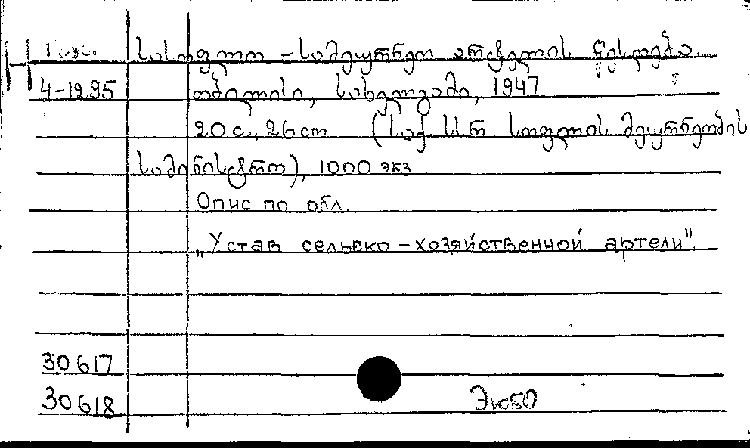 Н Груз. სასოფლო-სამეურნეო არტელის წესდება.
4-1295 თბილისი, სახელგამი, 1947
20 с., 26 см (საქ. სსრ სოფლის მეურნეობის
სამინისტრო), 1000 экз
Опис по обл.
„Устав сельско-хозяйственной артели".
30617
30618